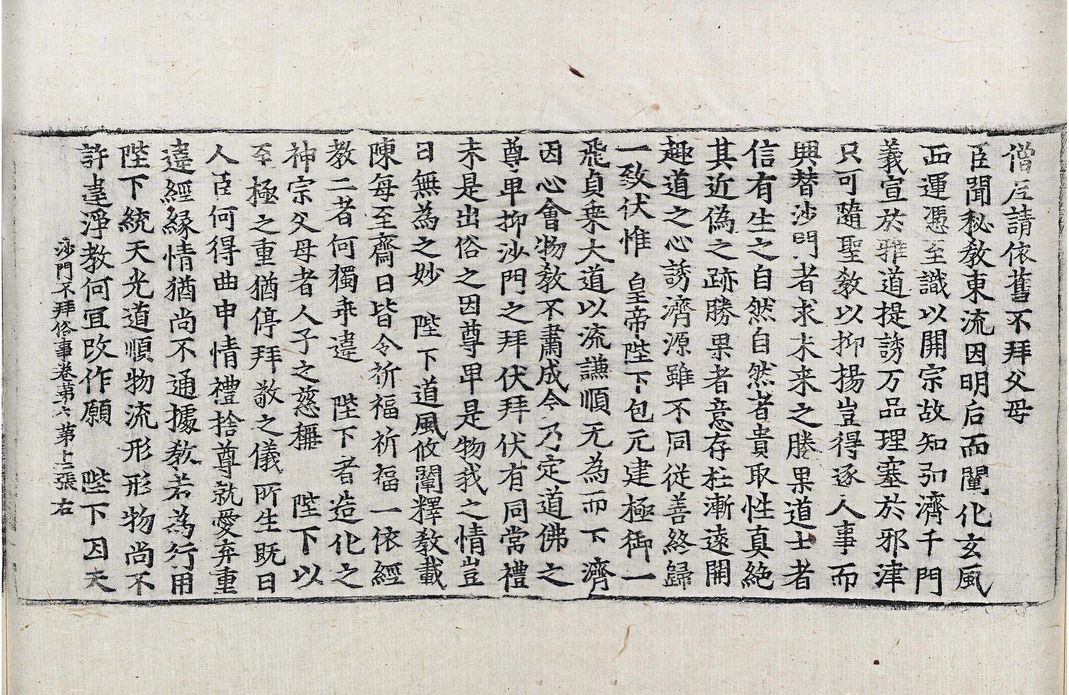 僧尼請依舊不拜父母
臣聞秘教東流因明后而闡化玄風
西運憑至識以開宗故知弘濟千門
義宣於雅道提誘万品理塞於邪津
只可隨聖教以抑揚豈得逐人事而
興替沙門者求未来之勝果道士者
信有生之自然自然者貴取性真絕
其近偽之跡勝果者意存杜漸遠開
趣道之心誘濟源雖不同從善終歸
一致伏惟　皇帝陛下包元建極御一
飛貞乗大道以流謙順无為而下濟
因心會物教不肅成今乃定道佛之
尊卑抑沙門之拜伏拜伏有同常禮
未是出俗之因尊卑是物我之情豈
曰無為之妙　陛下道風攸闡釋教載
陳每至齋日皆令祈福祈福一依經
教二者何獨乖違　陛下者造化之
神宗父母者人子之慈稱　陛下以
至極之重猶停拜敬之儀所生既曰
人臣何得曲申情禮捨尊就愛弃重
違經縁情猶尚不通據教若為行用
陛下統天光道順物流形形物尚不
許違淨教何冝改作願　陛下因天
沙門不拜俗事卷第六　第十二張　右